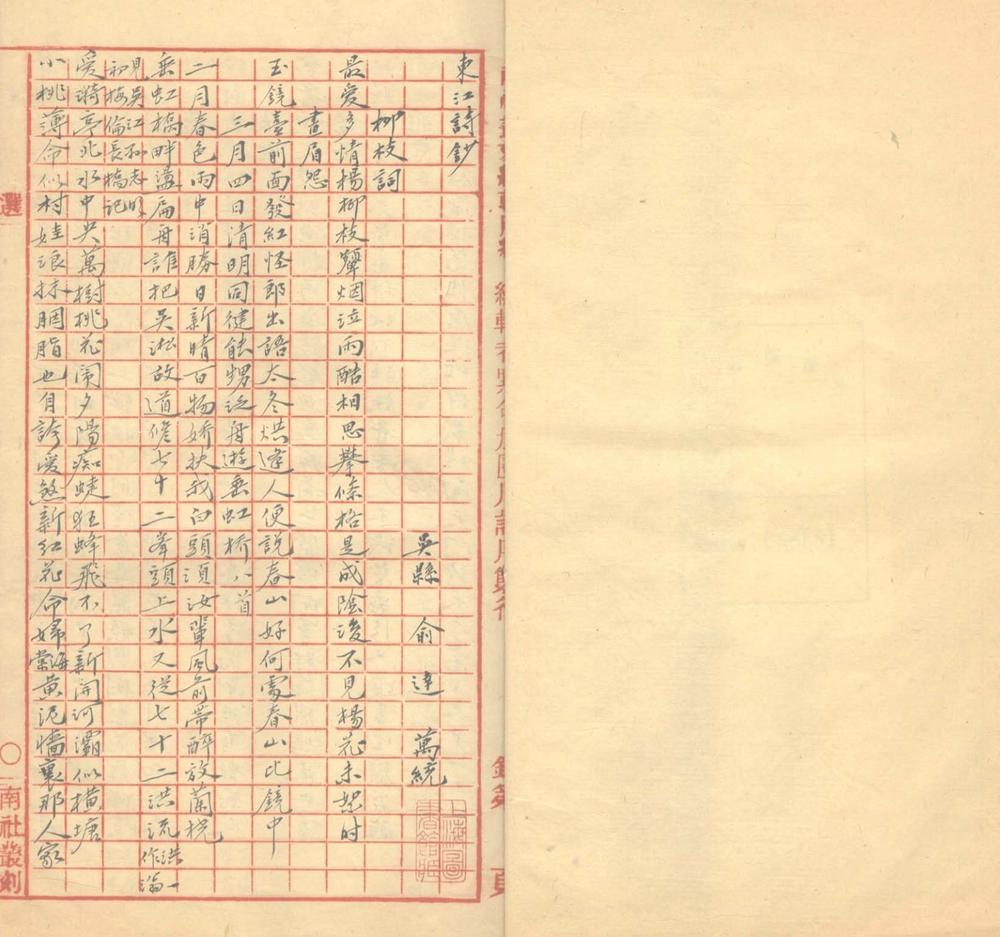 東江詩鈔
吳縣 俞達 萬統
柳枝詞
最愛多情楊柳枝顰烟泣雨酷相思攀條格是成陰後不見楊花未恕時
畫眉怨
玉鏡臺前面發紅怪郎出語太冬烘逢人便說春山好何處春山比鏡中
三月四日清明同健能甥泛舟遊垂虹橋八首
二月春色雨中消勝日新晴百物嬌扶我白頭須汝輩風前帶醉放蘭橈
垂虹橋畔蕩扁舟誰把吳淞故道修七十二峯頭上水又從七十二洪流洪一作論
見吳江孫志明初梅倫長橋記
愛漪亭北水中央萬樹桃花鬧夕陽癡蜨狂蜂飛不了新開河灞似橫塘
小桃薄命似村娃浪抹胭脂也自誇愛煞新紅花命婦海棠黃泥墻裏那人家
選
〇
南社叢刻
上海圖書館藏
頁